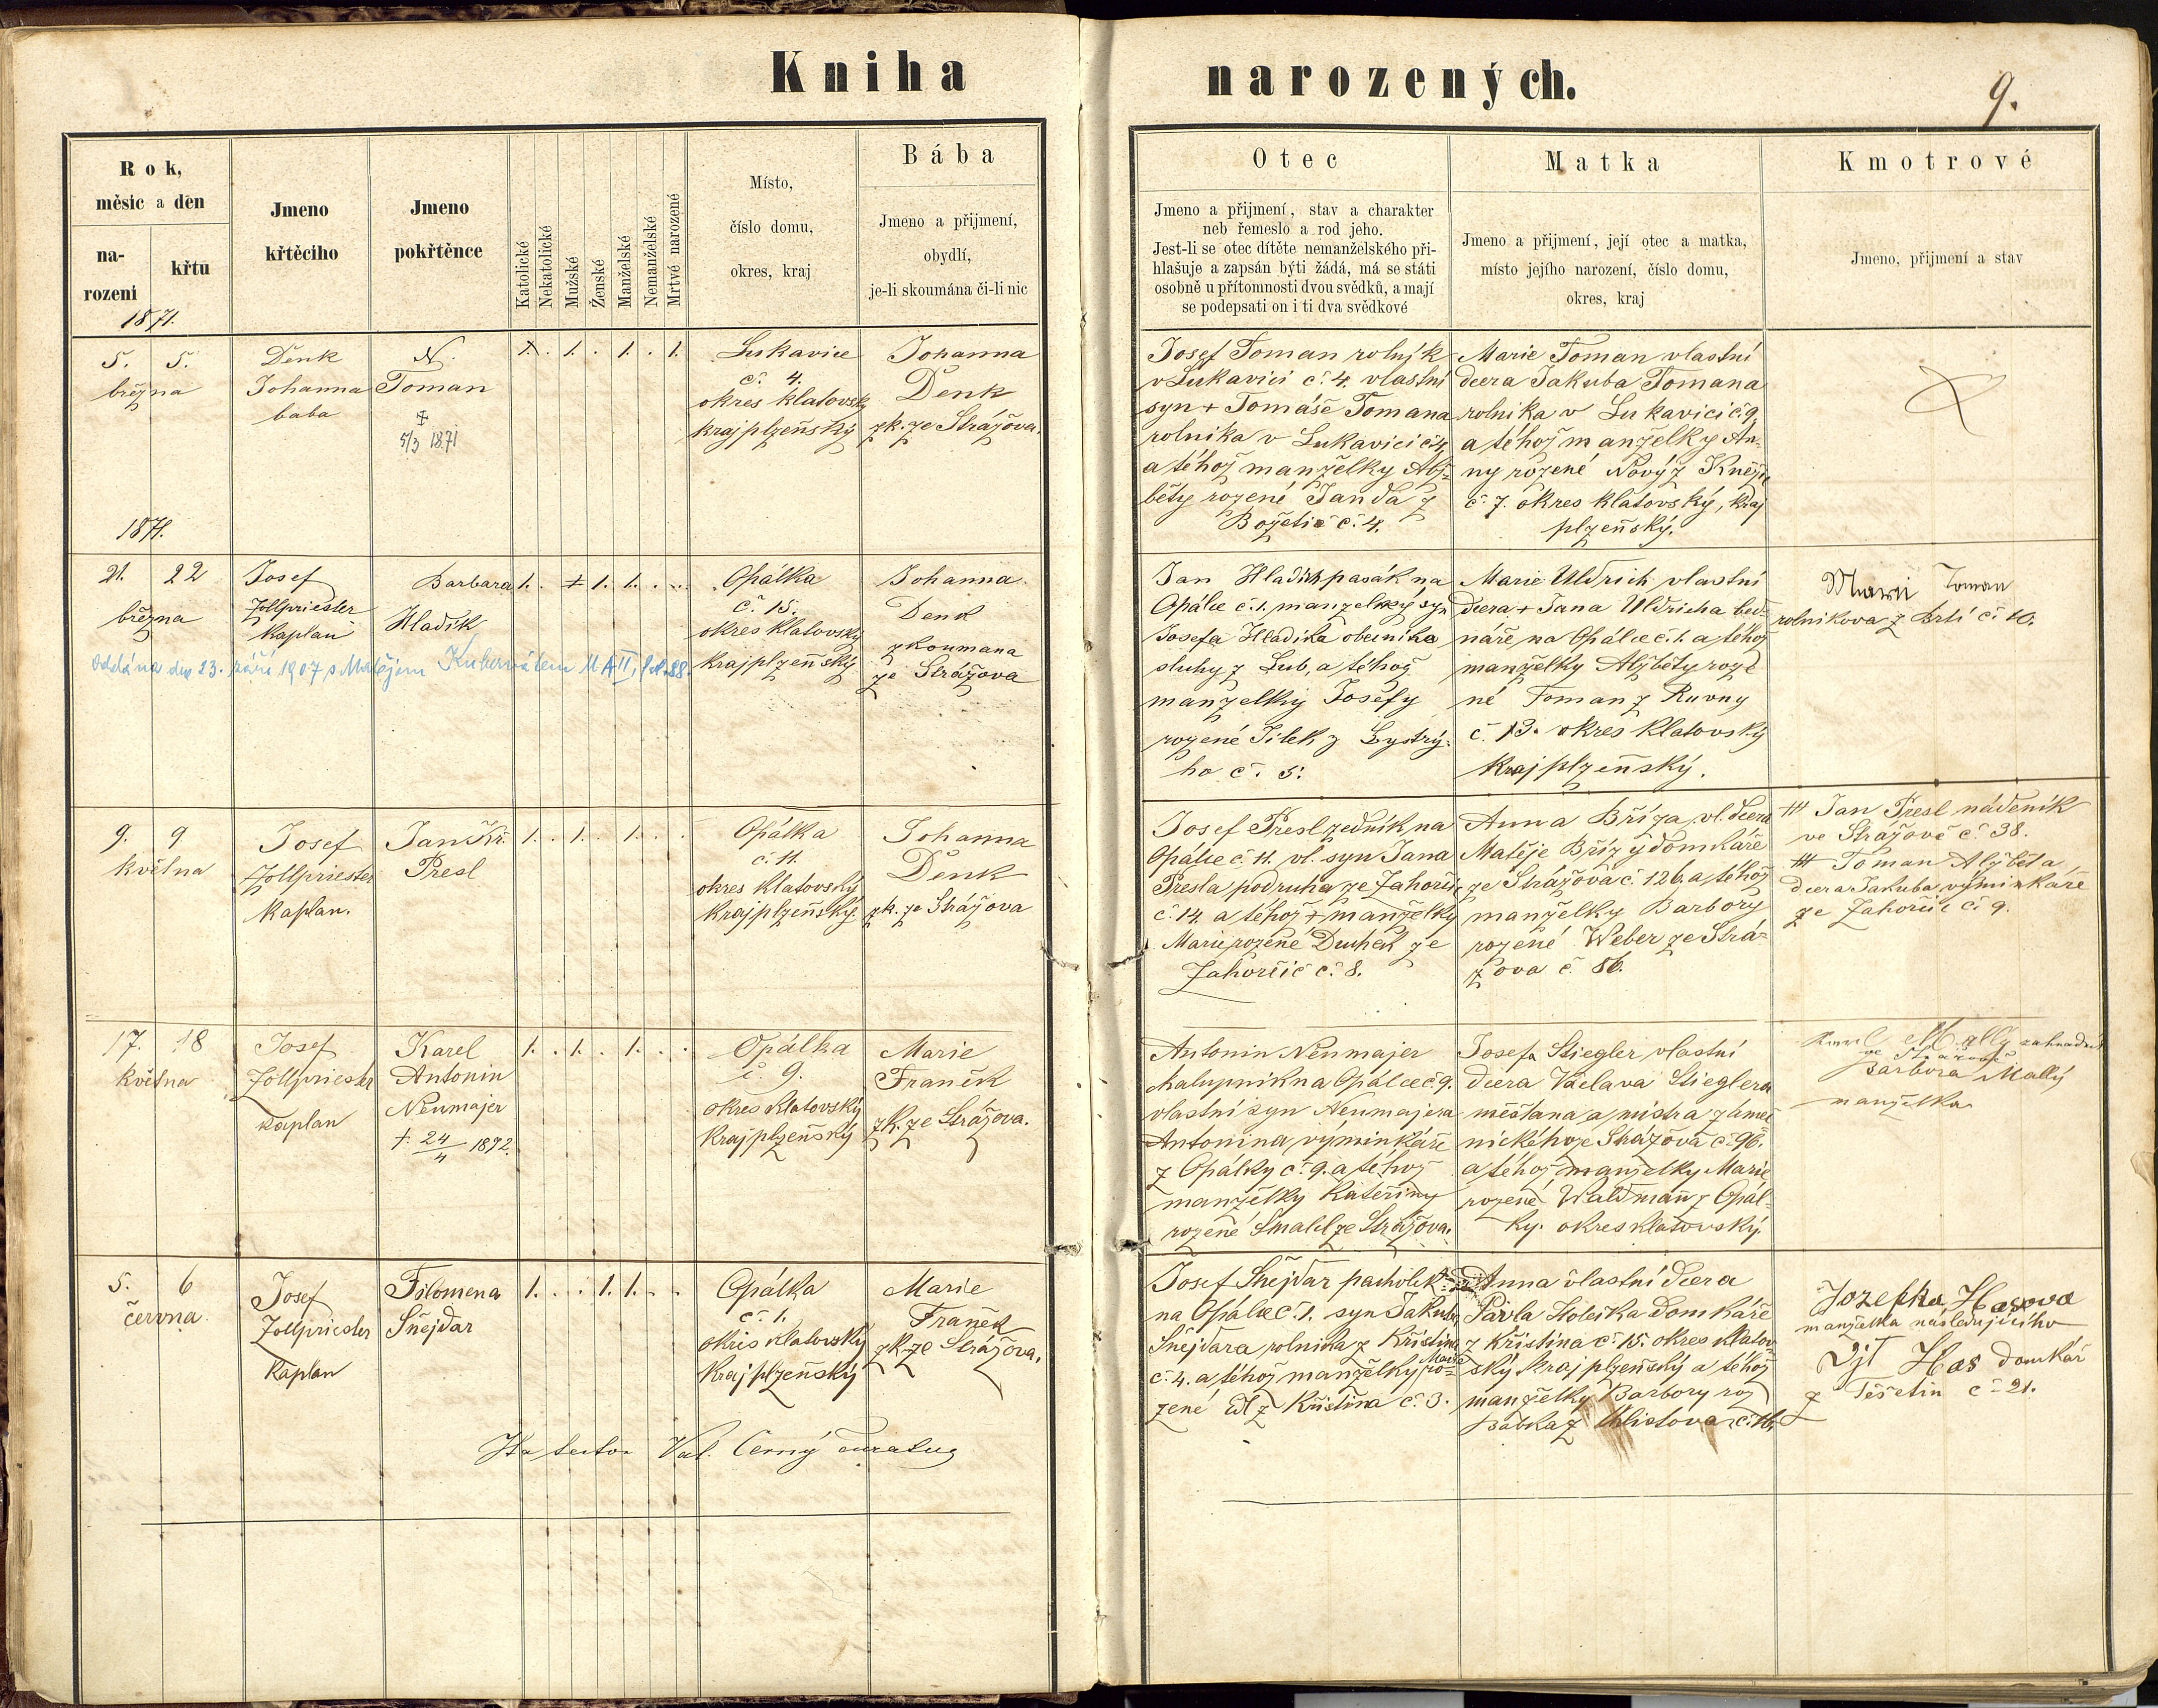 Kniha narozených.
9.
Rok,
měsic a den
na-
rozeni
křtu
1871.
Jmeno
křtěciho
Jmeno
pokřtěnce
Katolické
Nekatolické
Mužské
Ženské
Manželské
Nemanželské
Mrtvé narozené
Místo,
číslo domu,
okres, kraj
Bába
Jmeno a přijmení,
obydlí,
je-li skoumána či-li nic
Otec
Jmeno a přijmení, stav a charakter
neb řemeslo a rod jeho.
Jest-li se otec dítěte nemanželského při-
hlašuje a zapsán býti žádá, má se státi
osobně u přítomnosti dvou svědků, a mají
se podepsati on i ti dva svědkové
Matka
Jmeno a přijmení, její otec a matka,
místo jejího narození, číslo domu,
okres, kraj
Kmotrové
Jmeno, přijmení a stav
5. 5.
března
Denk
Johanna
baba
N.
Toman
‡
5/3 1871
1. . 1. . 1. . 1.
Lukavice
č. 4.
okres klatovský
kraj plzeňský
Johanna
Denk
zk. ze Strážova.
Josef Toman rolník
v Lukavici č. 4. vlastní
syn + Tomáše Tomana
rolníka v Lukavici č. 4
a téhož manželky Alž-
běty rozené Janda z
Božetic č. 4.
Marie Toman vlastní
dcera Jakuba Tomana
rolníka v Lukavici č. 9.
a téhož manželky An-
ny rozené Nový z Kněžic
č. 7. okres klatovský, kraj
plzeňský.
1871.
21. 22
března
Josef
Zollpriester
kaplan
Barbara
Hladík
1. . 1. 1. . .
Opálka
č. 15.
okres klatovský
kraj plzeňský
Johanna
Denk
zkoumana
ze Strážova
Oddána dne 23. září 1907 s Matějem Kubernátem M A II, fol. 88.
Jan Hladík pasák na
Opálce č. 1. manželský syn
Josefa Hladíka obecníka
sluhy z Lub, a téhož
manželky Josefy
rozené Jílek z Bystrý-
ho č. 5.
Marie Uldrich vlastní
dcera + Jana Uldricha bed-
náře na Opálce č. 1. a téhož
manželky Alžběty roze
né Toman z Ruvny
č. 13. okres klatovský
kraj plzeňský.
Marii Toman
rolnikova z Brtí č. 10.
9. 9
května
Josef
Zollpriester
kaplan.
Jan Kř.
Presl
1. . 1. . 1. . .
Opálka
č. 11.
okres klatovský
kraj plzeňský.
Johanna
Denk
zk. ze Strážova
Josef Presl zedník na
Opálce č. 11. vl. syn Jana
Presla podruha ze Zahorčic
č. 14. a téhož + manželky
Marie rozené Duchek ze
Zahorčic č. 8.
Anna Bříza, vl. dcera
Matěje Břízy domkáře
ze Strážova č. 126. a téhož
manželky Barbory
rozené Weber ze Strá-
žova č. 86.
+++ Jan Presl nádeník
ve Strážově č. 38.
+++ Toman Alžběta
dcera Jakuba výminkáře
ze Zahorčic č. 9.
17. 18
května
Josef
Zollpriester
kaplan
Karel
Antonin
Neumajer
+ 24/4 1892.
1. . 1. . 1. . .
Opálka
č. 9.
okres klatovský
kraj plzeňský
Marie
Franěk
zk. ze Strážova.
Antonin Neumajer
chalupník na Opálce č. 9.
vlastní syn Neumajera
Antonina, výminkáře
z Opálky č. 9. a téhož
manželky Kateřiny
rozené Smahl ze Strážova.
Josefa Stiegler vlastní
dcera Václava Stieglera
měšťana a mistra zámeč
nického ze Strážova č. 96.
a téhož manželky Marie
rozené Waldmann z Opál-
ky. okres klatovský.
Karel Mallý zahradník
ve Stražově
Barbora Mallý
manželka
5. 6
června.
Josef
Zollpriester
kaplan
Filomena
Šnejdar
1. . . 1. 1. . .
Opálka
č. 1.
okres klatovský
kraj plzeňský
Marie
Franěk
zk. ze Strážova.
Josef Šnejdar pacholek
na Opálce č. 1. syn Jakuba
Šnejdara rolníka z Křištína
č. 4. a téhož manželky Marie ro-
zené Edl z Křištína č. 3.
Anna vlastní dcera
Pavla Holečka domkáře
z Křištína č. 15. okres klatov-
ský kraj plzeňský a téhož
manželky Barbory roz
Babka z Chlistova č. 16.
Jozefka Hasova
manželka následujícího
Vjt Has domkář
z Těšetin č. 21.
Val. Černý